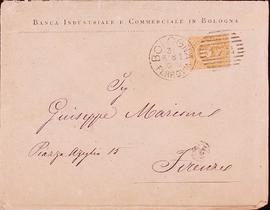 BANCA INDUSTRIALE E COMMERCIALE IN BOLOGNA
BOLOGNA
FERROVIA
Giuseppe Marconi
Piazza Azeglio 15
Firenze